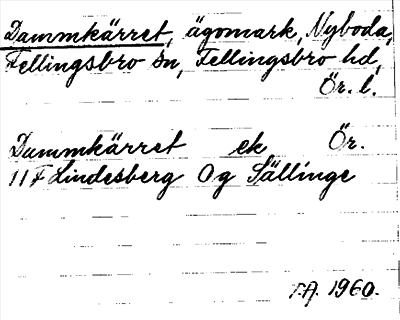 Dammkärret, ägomark, Nyboda,
Fellingsbro sn, Fellingsbro hd,
Ör. l.
Dammkärret ek Ör.
11 F Lindesberg Og Sällinge
T.A. 1960.